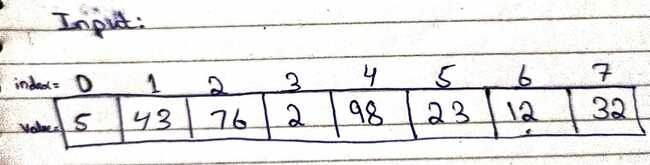 Input:
index= 0 1 2 3 4 5 6 7
value= 5 43 76 2 98 23 12 32